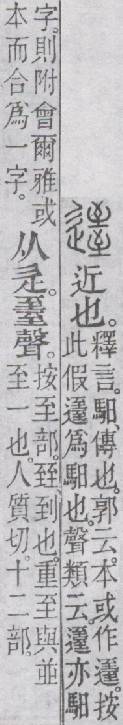 近也。
釋言。馹、傳也。郭云。本或作。按
此假爲馹也。聲類云。亦馹
字。則附會爾雅或
本而合爲一字。
从辵。臸聲。
按至部。臸、到也。重至與並
至一也。人質切。十二部。